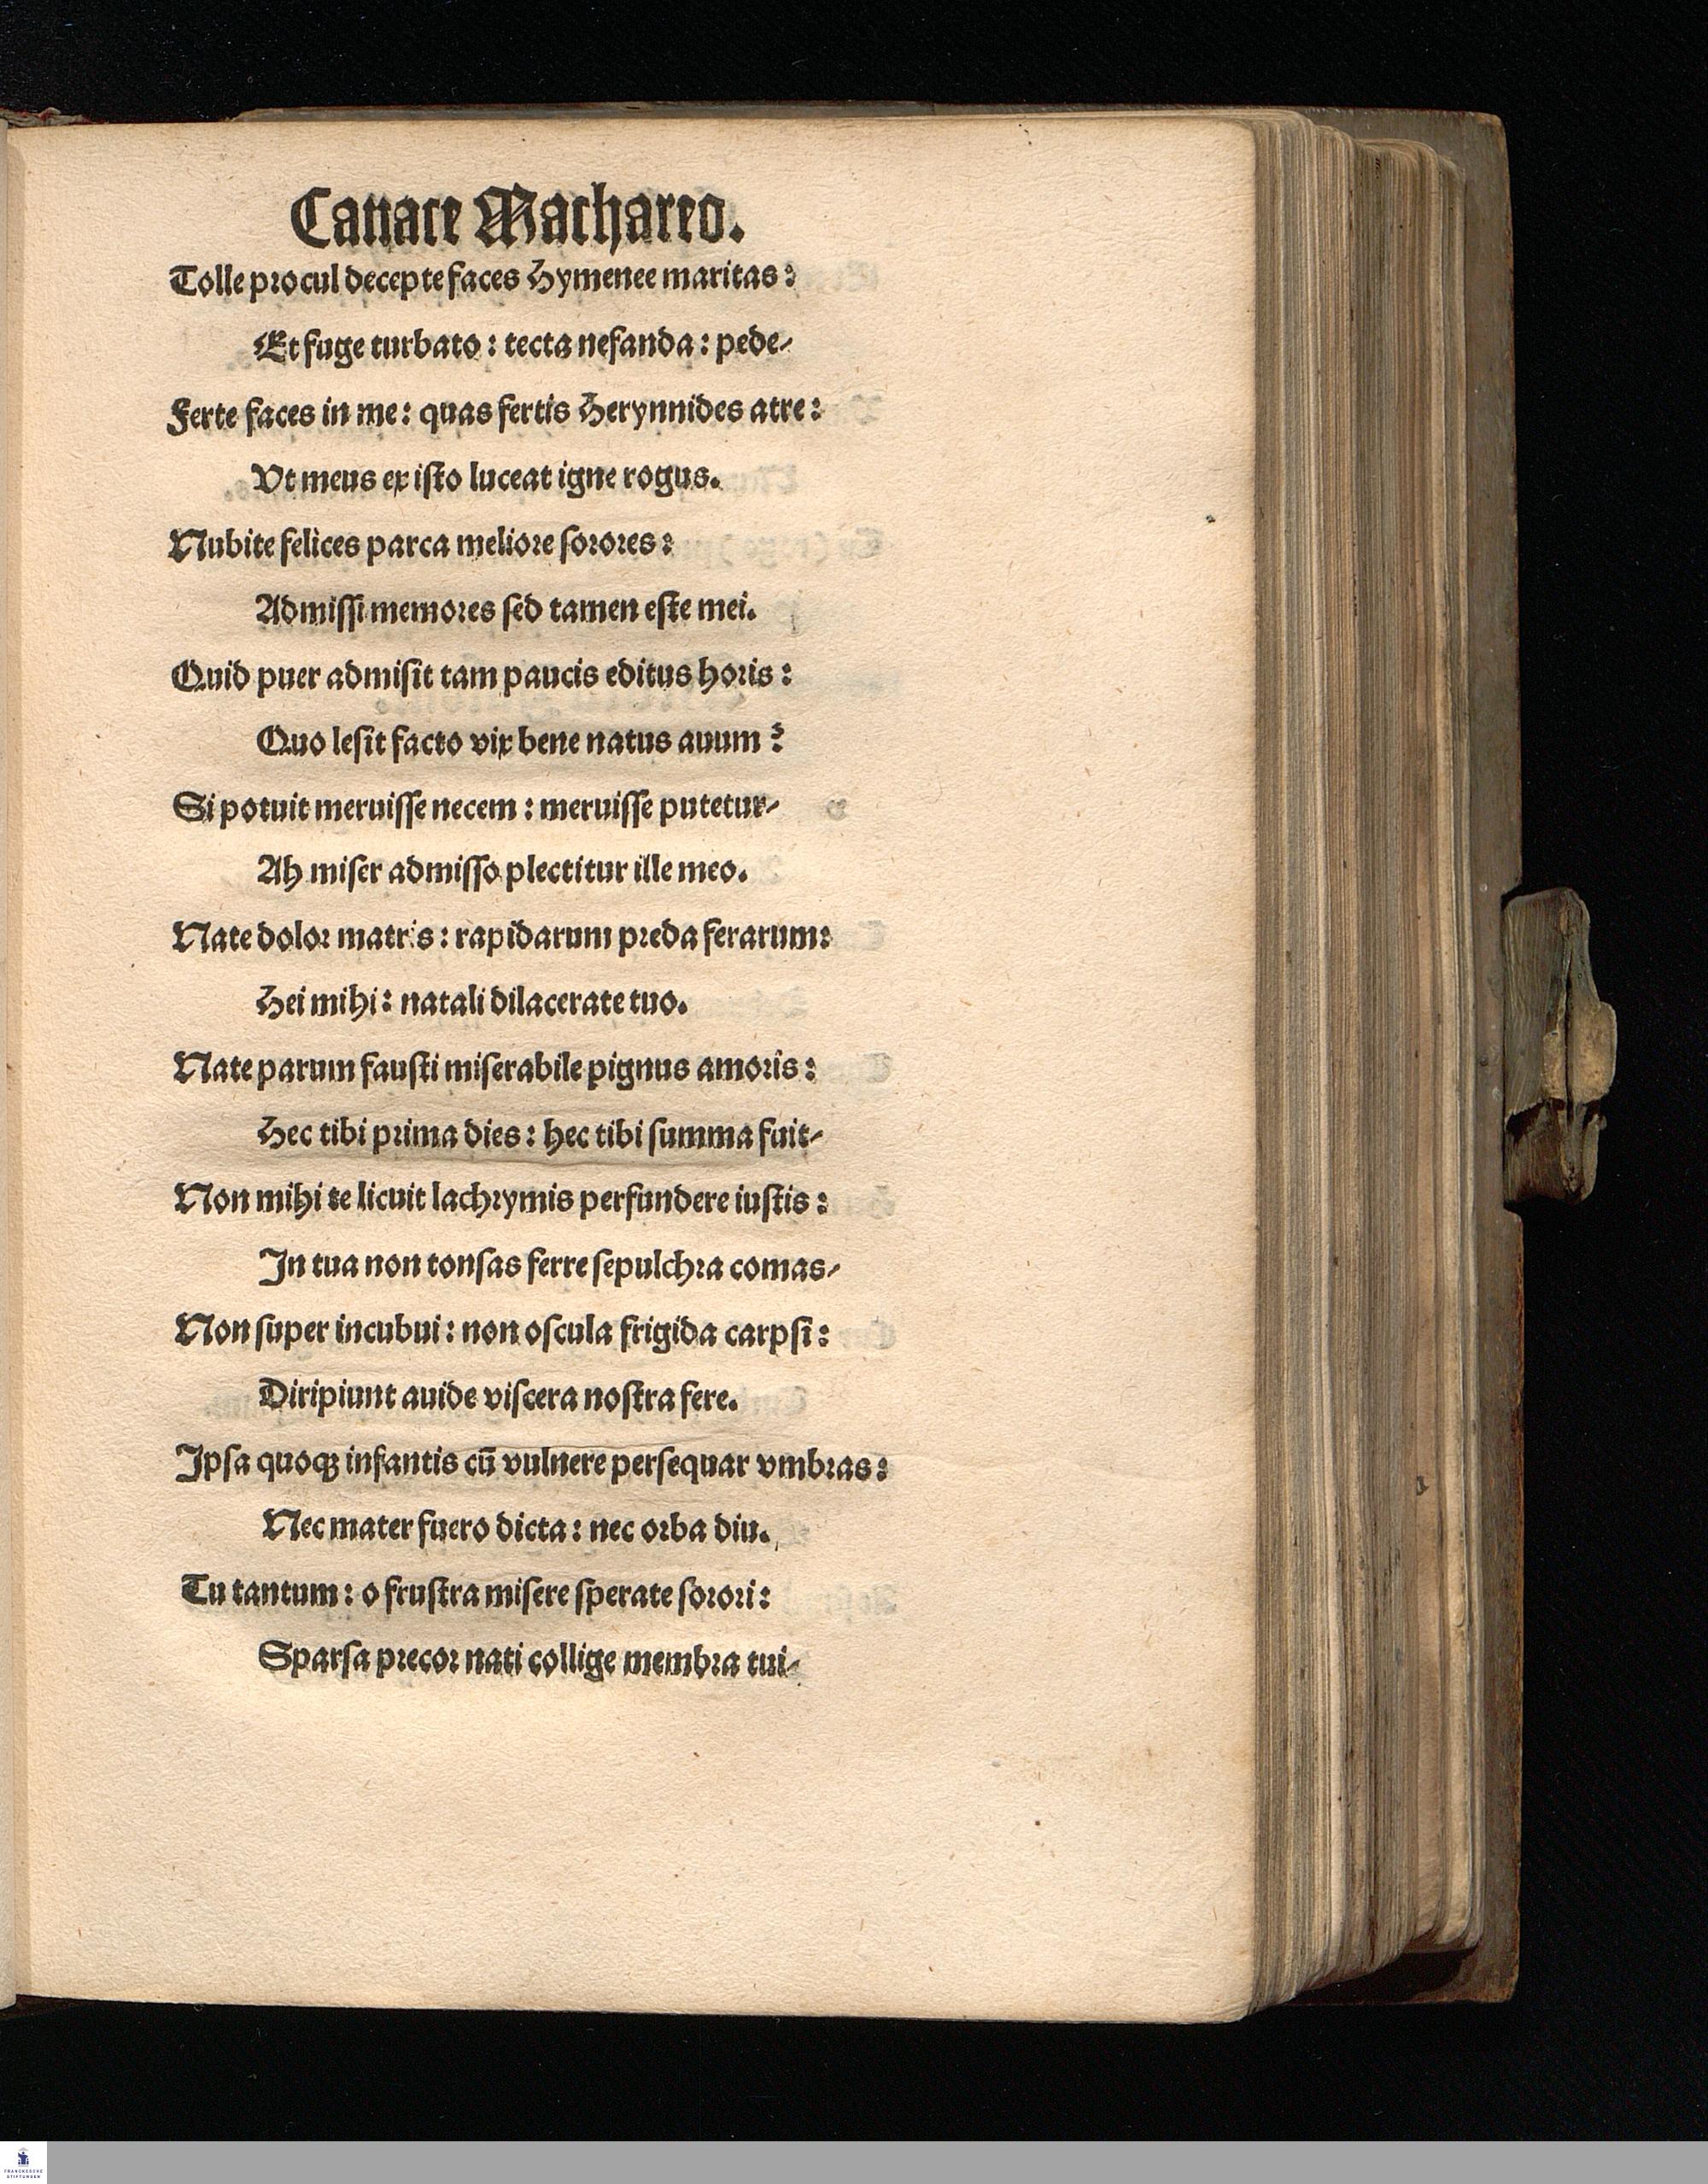 Canace Machareo.
Tolle procul decepte faces Hymenee maritas:
Et fuge turbato: tecta nefanda: pede⸗
Ferte faces in me: quas fertis Herynnides atre:
Vt meus ex iſto luceat igne rogus.
Nubite felices parca meliore ſorores:
Admiſſi memores ſed tamen eſte mei.
Quid puer admiſit tam paucis editus horis:
Quo leſit facto vix bene natus auum?
Si potuit meruiſſe necem: meruiſſe putetur⸗
Ah miſer admiſſo plectitur ille meo.
Nate dolor matris: rapidarum preda ferarum:
Hei mihi: natali dilacerate tuo.
Nate parum fauſti miſerabile pignus amoris:
Hec tibi prima dies: hec tibi ſumma fuit⸗
Non mihi te licuit lachrymis perfundere iuſtis:
In tua non tonſas ferre ſepulchra comas⸗
Non ſuper incubui: non oſcula frigida carpſi:
Diripiunt auide viſcera noſtra fere.
Ipſa quoqꝫ infantis cū vulnere perſequar vmbras:
Nec mater fuero dicta: nec orba diu.
Tu tantum: o fruſtra miſere ſperate ſorori:
Sparſa precor nati collige membra tui⸗
FRANCKESCHE
STIFTUNGEN